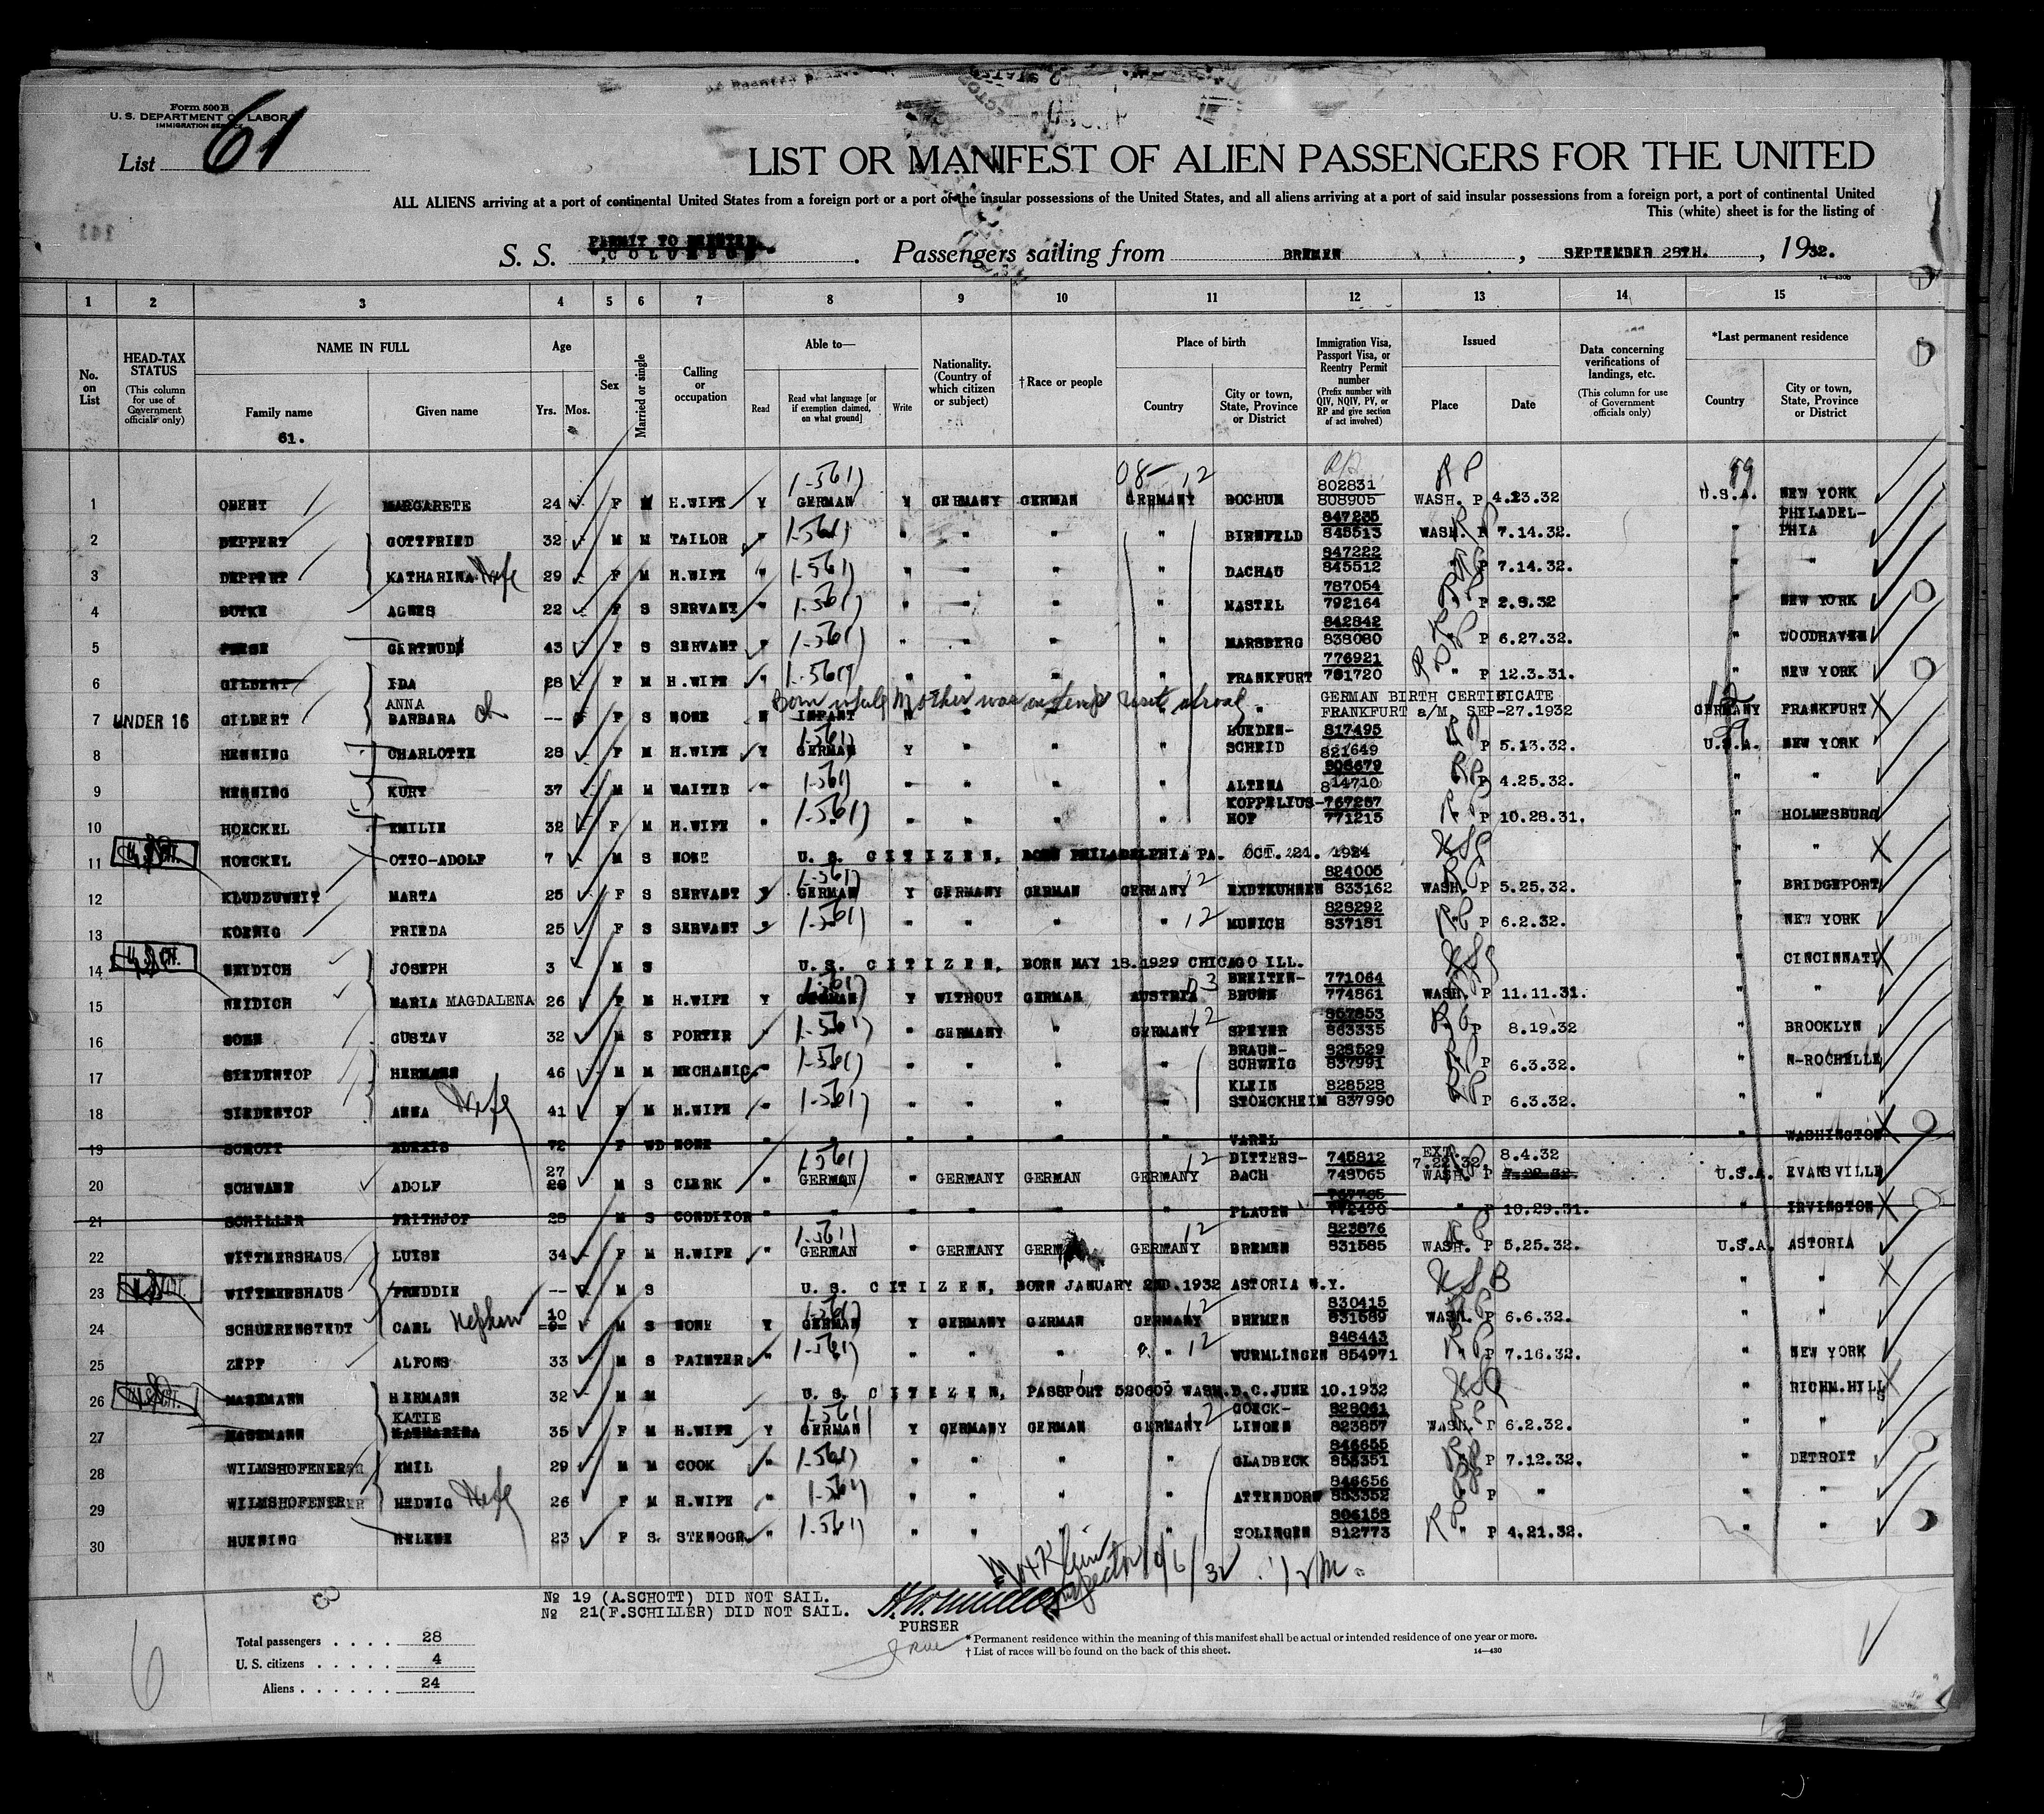 Form 500 B
U. S. DEPARTMENT OF LABOR
IMMIGRATION SERVICE
List 61
LIST OR MANIFEST OF ALIEN PASSENGERS FOR THE UNITED
ALL ALIENS arriving at a port of continental United States from a foreign port or a port of the insular possessions of the United States, and all aliens arriving at a port of said insular possessions from a foreign port, a port of continental United
This (white) sheet is for the listing of
PERMIT TO REENTER
S. S. COLUMBUS. Passengers sailing from BREMEN, SEPTEMBER 28TH., 1932.
14—430b
1 2 3 4 5 6 7 8 9 10 11 12 13 14 15
No. on List
HEAD-TAX STATUS (This column for use of Government officials only)
NAME IN FULL Family name Given name
61.
Age Yrs. Mos.
Sex
Married or single
Calling or occupation
Able to— Read Read what language [or if exemption claimed, on what ground] Write
Nationality. (Country of which citizen or subject)
†Race or people
Place of birth Country City or town, State, Province or District
Immigration Visa, Passport Visa, or Reentry Permit number (Prefix number with QIV, NQIV, PV, or RP and give section of act involved)
Issued Place Date
Data concerning verifications of landings, etc. (This column for use of Government officials only)
*Last permanent residence Country City or town, State, Province or District
1 OBERT MARGARETE 24 F M H.WIFE Y GERMAN Y GERMANY GERMAN GERMANY BOCHUM 802831 808905 WASH. P 4.23.32 U.S.A. NEW YORK
2 DEPPERT GOTTFRIED 32 M M TAILOR " " " " " BIRNFELD 847235 845513 WASH. P 7.14.32. " PHILADELPHIA
3 DEPPERT KATHARINA Wife 29 F M H.WIFE " " " " " DACHAU 847222 845512 P 7.14.32. " "
4 AGNES 22 F S SERVANT " " " " " MASTEL 787054 792164 P 2.8.32 " NEW YORK
5 GERTRUDE 43 F S SERVANT " " " " " MARSBERG 842842 838080 P 6.27.32. " WOODHAVEN
6 GILBERT IDA 28 F M H.WIFE " " " " " FRANKFURT 776921 781720 " P 12.3.31. " NEW YORK
Born while Mother was on temp visit abroad
7 UNDER 16 GILBERT ANNA BARBARA ch -- F S NONE N INFANT N " GERMAN BIRTH CERTIFICATE FRANKFURT a/M. SEP-27.1932 GERMANY FRANKFURT
8 HENNING CHARLOTTE 28 F M H.WIFE Y GERMAN Y " " " LUEDENSCHEID 817495 821649 P 5.13.32. U.S.A. NEW YORK
9 HENNING KURT 37 M M WAITER " " " " " ALTENA 808679 814710 P 4.25.32. " "
10 HOECKEL EMILIE 32 F M H.WIFE " " " " " KOPPELIUS-HOF 767287 771215 P 10.28.31. " HOLMESBURG
11 HOECKEL OTTO-ADOLF 7 M S NONE U. S. CITIZEN, BORN PHILADELPHIA PA. OCT. 21. 1924 " "
12 KLUDZUWEIT MARTA 25 F S SERVANT Y GERMAN Y GERMANY GERMAN GERMANY EYDTKUHNEN 824005 833162 WASH. P 5.25.32. " BRIDGEPORT
13 KOENIG FRIEDA 25 F S SERVANT " " " " " MUNICH 828292 837181 P 6.2.32. " NEW YORK
14 NEIDICH JOSEPH 3 M S U. S. CITIZEN, BORN MAY 18.1929 CHICAGO ILL. " CINCINNATI
15 NEIDICH MARIA MAGDALENA 26 F M H.WIFE Y GERMAN Y WITHOUT GERMAN AUSTRIA BREITENBRUNN 771064 774861 WASH. P 11.11.31. " "
16 SOHN GUSTAV 32 M S PORTER " " GERMANY " GERMANY SPEYER 857853 863335 P 8.19.32 " BROOKLYN
17 SIEDENTOP HERMANN 46 M M MECHANIC " " " " " BRAUNSCHWEIG 828529 837991 P 6.3.32. " N-ROCHELLE
18 SIEDENTOP ANNA Wife 41 F M H.WIFE " " " " " KLEIN STOECKHEIM 828528 837990 P 6.3.32. " "
19 SCHOTT ALEXIS 72 F WD NONE " " " " " VAREL " WASHINGTON
20 SCHWANN ADOLF 27 28 M S CLERK " GERMAN " GERMANY GERMAN GERMANY DITTERSBACH 745812 748065 EXT. 7.22.32. WASH. P 8.4.32 7.22.32. U.S.A. EVANSVILLE
21 SCHILLER FRITHJOF 28 M S CONDITOR " " " " " PLAUEN 767785 772490 " P 10.29.31. " IRVINGTON
22 WITTMERSHAUS LUISE 34 F M H.WIFE " GERMAN " GERMANY GERMAN GERMANY BREMEN 823876 831585 WASH. P 5.25.32. U.S.A. ASTORIA
23 WITTMERSHAUS FREDDIE -- M S U. S. CITIZEN, BORN JANUARY 2ND.1932 ASTORIA N.Y. " "
24 SCHUERENSTEDT CARL Nephew 10 9 M S NONE Y GERMAN Y GERMANY GERMAN GERMANY BREMEN 830415 831589 WASH. P 6.6.32. " "
25 ZEPF ALFONS 33 M S PAINTER " " " " " WURMLINGEN 848443 854971 " P 7.16.32. " NEW YORK
26 MASEMANN HERMANN 32 M M U. S. CITIZEN, PASSPORT 520609 WASH.D.C.JUNE 10.1932 " RICHM.HILLS
27 MASEMANN KATIE KATHARINA 35 F M H.WIFE Y GERMAN Y GERMANY GERMAN GERMANY LINGEN 828061 823857 WASH. P 6.2.32. " "
28 WILMSHOFENER EMIL 29 M M COOK " " " " " GLADBECK 846655 853351 P 7.12.32. " DETROIT
29 WILMSHOFENER HEDWIG Wife 26 F M H.WIFE " " " " " ATTENDORN 846656 853352 " P " " "
30 HUENING HELENE 23 F S. STENOGR. " " " " " SOLINGEN 806158 812773 " P 4.21.32. " "
Inspector 10/6/32
№ 19 (A.SCHOTT) DID NOT SAIL.
№ 21(F.SCHILLER) DID NOT SAIL.
PURSER
Total passengers . . . . 28
U. S. citizens . . . . . 4
Aliens . . . . . . 24
* Permanent residence within the meaning of this manifest shall be actual or intended residence of one year or more.
† List of races will be found on the back of this sheet. 14—430
6